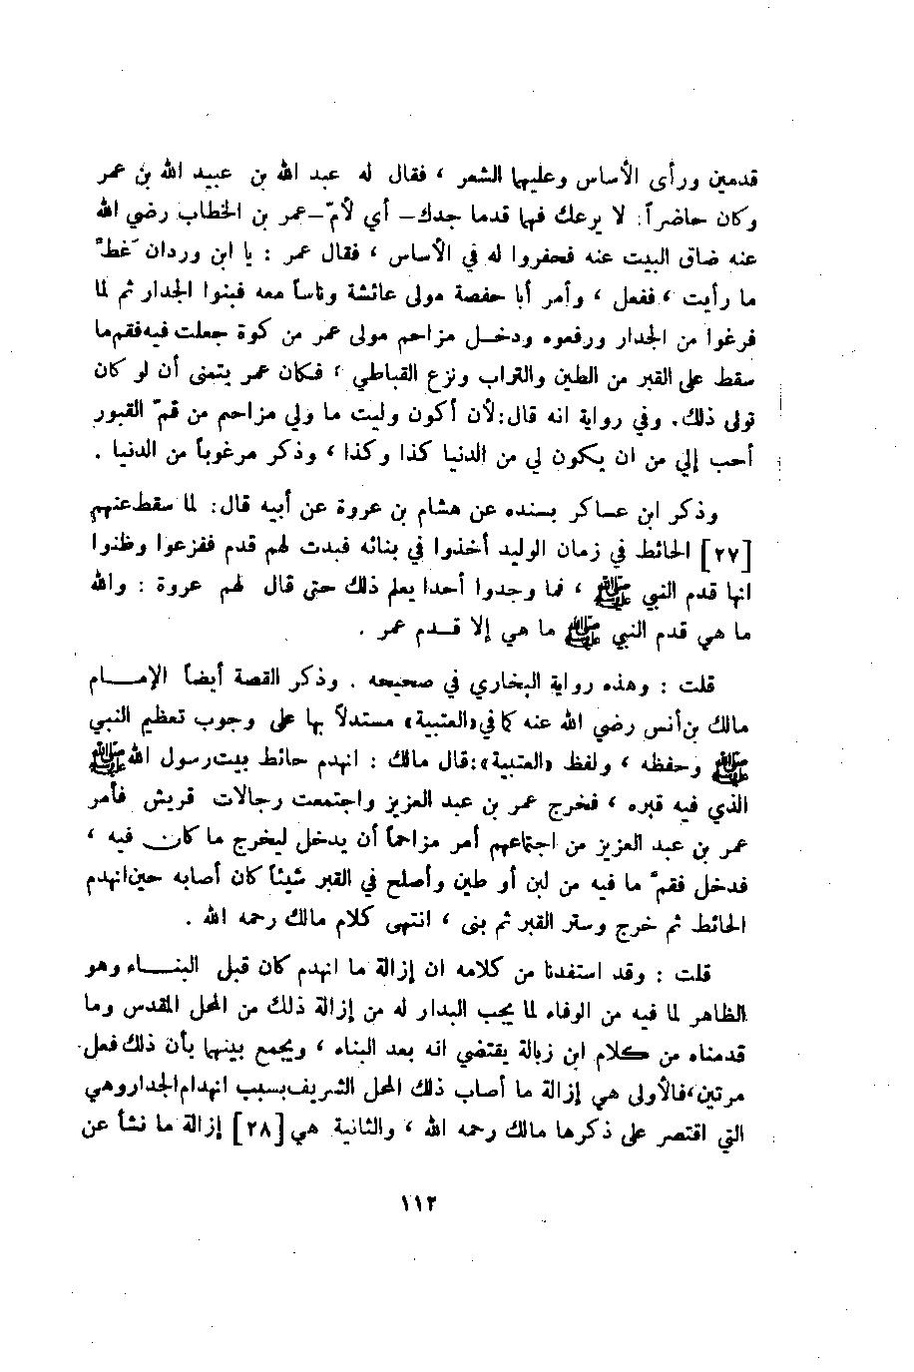 قدمين ورأى الأساس وعليهما الشعر ، فقال له عبد الله بن عبيد الله بن عمر
وكان حاضراً : لا يرعك فهما قدما جدك – أي لأمّ – عمر بن الخطاب رضي الله
عنه ضاق البيت عنه فحفروا له في الأساس ، فقال عمر : يا ابن وردان غطّ
ما رأيت ، ففعل ، وأمر أبا حفصة مولى عائشة وناساً معه فبنوا الجدار ثم لما
فرغوا من الجدار ورفعوه ودخل مزاحم مولى عمر من كوة جعلت فيه فقم ما
سقط على القبر من الطين والتراب ونزع القباطي ، فكان عمر يتمنى أن لو كان
تولى ذلك. وفي رواية انه قال : لأن أكون وليت ما ولي مزاحم من قمّ القبور
أحب إلي من ان يكون لي من الدنيا كذا وكذا ، وذكر مرغوباً من الدنيا .
وذكر ابن عساكر بسنده عن هشام بن عروة عن أبيه قال : لما سقط عنهم
[٢٧] الحائط في زمان الوليد أخذوا في بنائه فبدت لهم قدم ففزعوا وظنوا
انها قدم النبي ﷺ ، فما وجدوا أحدا يعلم ذلك حتى قال لهم عروة : والله
ما هي قدم النبي ﷺ ما هي إلا قدم عمر .
قلت : وهذه رواية البخاري في صحيحه . وذكر القصة أيضاً الإمام
مالك بن أنس رضي الله عنه كما في «العتبية» مستدلاً بها على وجوب تعظيم النبي
ﷺ وحفظه ، ولفظ «العتبية» : قال مالك : انهدم حائط بيت رسول الله ﷺ
الذي فيه قبره ، فخرج عمر بن عبد العزيز واجتمعت رجالات قريش فأمر
عمر بن عبد العزيز من اجتماعهم أمر مزاحماً أن يدخل ليخرج ما كان فيه ،
فدخل فقمّ ما فيه من لبن أو طين وأصلح في القبر شيئاً كان أصابه حين انهدم
الحائط ثم خرج وستر القبر ثم بنى ، انتهى كلام مالك رحمه الله .
قلت : وقد استفدنا من كلامه ان إزالة ما انهدم كان قبل البناء وهو
الظاهر لما فيه من الوفاء لما يجب البدار له من إزالة ذلك من المحل المقدس وما
قدمناه من كلام ابن زبالة يقتضي انه بعد البناء ، ويجمع بينهما بأن ذلك فعل
مرتين ، فالأولى هي إزالة ما أصاب ذلك المحل الشريف بسبب انهدام الجدار وهي
التي اقتصر على ذكرها مالك رحمه الله ، والثانية هي [٢٨] إزالة ما نشأ عن
١١٢